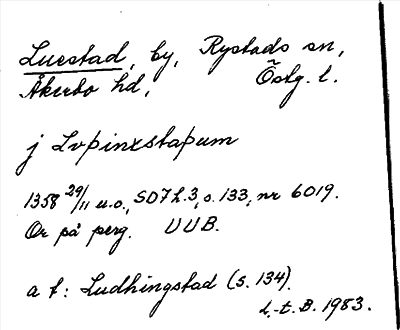 Luestad, by, Rystads sn,
Åkerbo hd, Östg. l.
j Lvþinxstaþum
1358 29/11 u.o., SD7 h.3, s. 133, nr 6019.
Or på perg. UUB.
a t: Ludhingstad (s. 134).
L.-t. B. 1983.